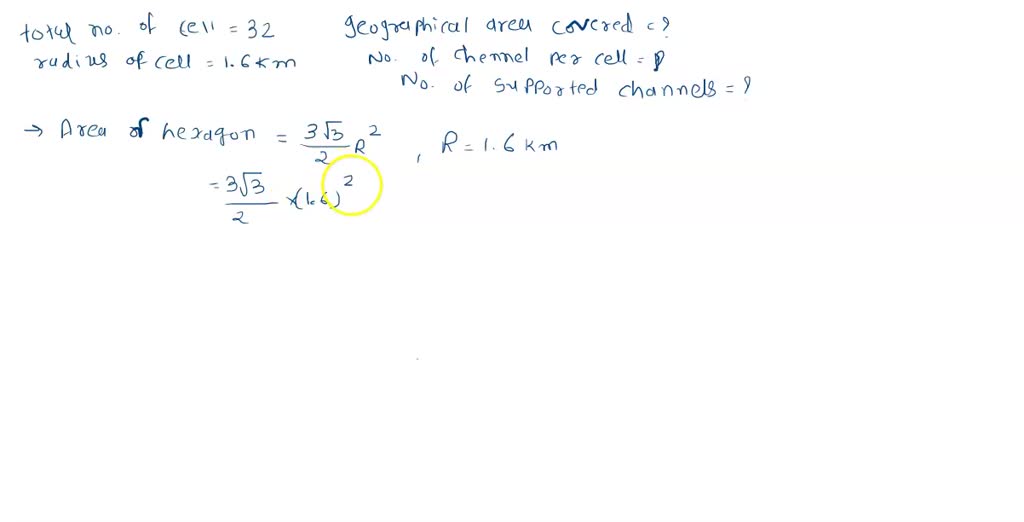 total no. of cell = 32
radius of cell = 1.6 km
geographical area covered = ?
No. of channel per cell = ?
No. of supported channels = ?
→ Area of hexagon = 3√3/2 R² , R = 1.6 km
= 3√3/2 × (1.6)²